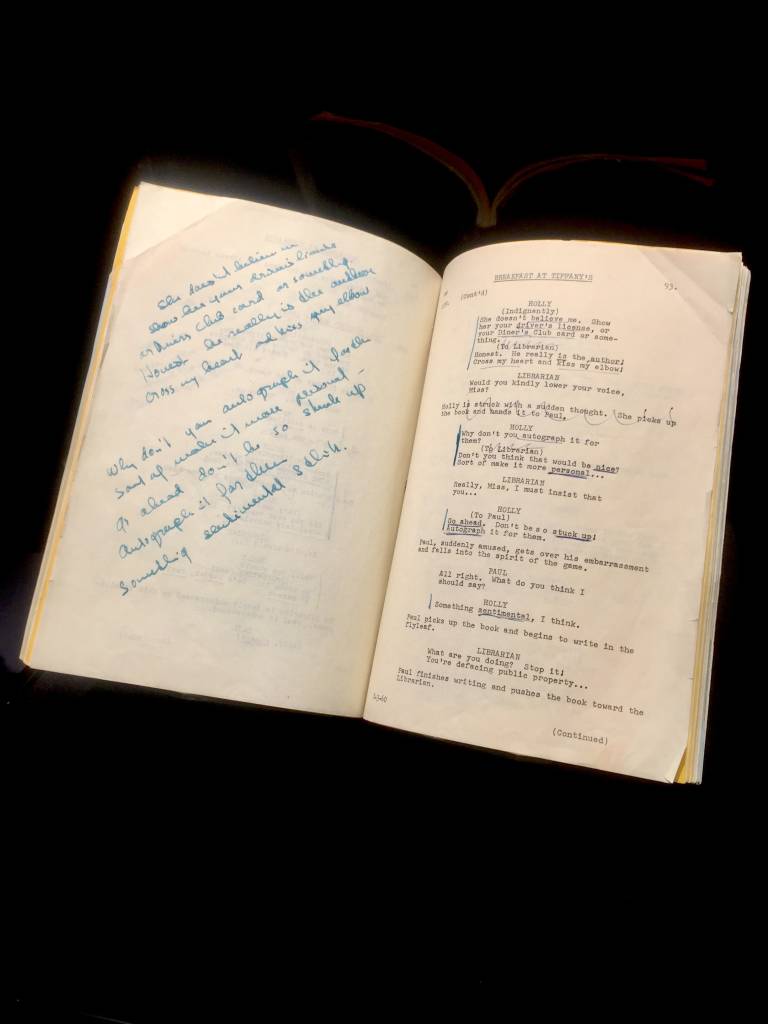 She doesn't believe me
show her your drivers license
or Diners club card or something.
Honest he really is the author
cross my heart and kiss my elbow
Why don't you autograph it for the
sort of make it more personal –
Go ahead don't be so stuck up
Autograph it for them
Something sentimental I think.
BREAKFAST AT TIFFANY'S
93.
(Cont'd)
HOLLY
(Indignantly)
She doesn't believe me. Show
her your driver's license, or
your Diner's Club card or some-
thing.
(To Librarian)
Honest. He really is the author!
Cross my heart and kiss my elbow!
LIBRARIAN
Would you kindly lower your voice,
Miss?
Holly is struck with a sudden thought. She picks up
the book and hands it to Paul.
HOLLY
Why don't you autograph it for
them?
(To Librarian)
Don't you think that would be nice?
Sort of make it more personal...
LIBRARIAN
Really, Miss, I must insist that
you...
HOLLY
(To Paul)
Go ahead. Don't be so stuck up!
Autograph it for them.
Paul, suddenly amused, gets over his embarrassment
and falls into the spirit of the game.
PAUL
All right. What do you think I
should say?
HOLLY
Something sentimental, I think.
Paul picks up the book and begins to write in the
flyleaf.
LIBRARIAN
What are you doing? Stop it!
You're defacing public property...
Paul finishes writing and pushes the book toward the
Librarian.
(Continued)